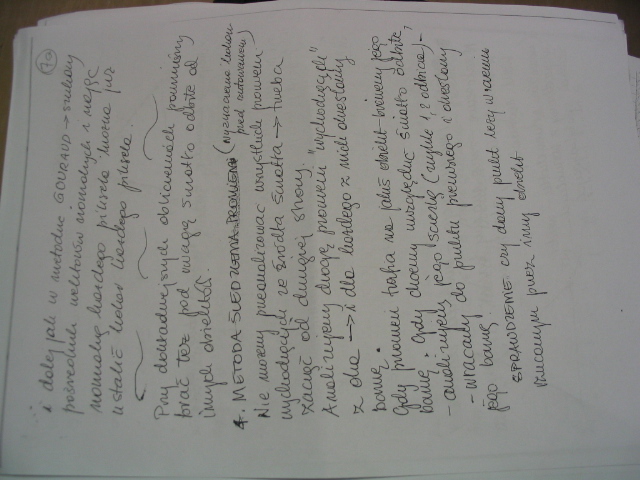 70
i dalej jak w metodzie GOURAUD → szukamy
pośrednich wektorów normalnych i mając
normalną każdego piksela można już
ustalić kolor każdego piksela.
Przy dokładniejszych obliczeniach powinniśmy
brać też pod uwagę światło odbite od
innych obiektów.
4. METODA ŚLEDZENIA PROMIENI (wyznaczanie kolorów
przed rzutowaniem)
Nie możemy przeanalizować wszystkich promieni
wychodzących ze źródła światła → trzeba
zacząć od drugiej strony.
Analizujemy drogę promieni "wychodzących"
z oka → i dla każdego z nich określamy
barwę.
Gdy promień trafia na jakiś obiekt bierzemy jego
barwę. Gdy chcemy uwzględnić światło odbite,
- analizujemy jego ścieżkę (zwykle 1, 2 odbicia) -
- wracamy do punktu pierwszego i określamy
jego barwę.
SPRAWDZENIE czy dany punkt leży w cieniu
rzucanym przez inny obiekt